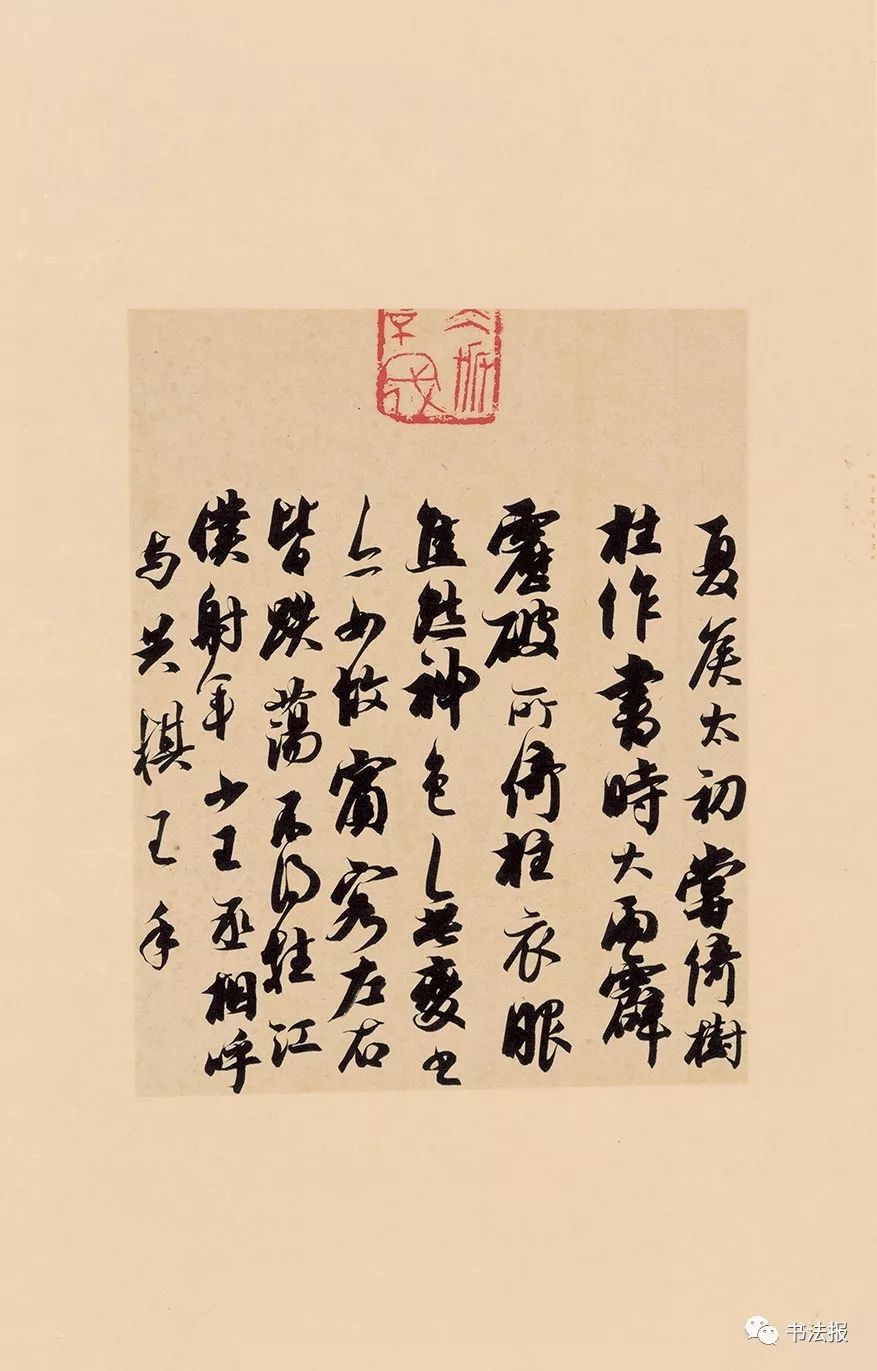 夏侯太初嘗倚樹
柱作書時大雨霹
靂破所倚柱衣服
焦然神色無變書
亦如故賓客左右
皆跌蕩不得住江
僕射年少王丞相呼
与共棋王手
书法报